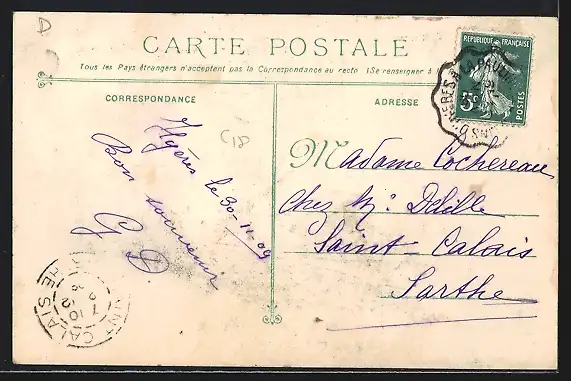 D
CARTE POSTALE
Tous les Pays étrangers n'acceptent pas la Correspondance au recto (Se renseigner à
CORRESPONDANCE
ADRESSE
REPUBLIQUE FRANÇAISE
5c
POSTES
C18
Hyères le 30-11-09
Bon souvenir
G D.
Madame Cochereau
Chez M. Delille
Saint-Calais
Sarthe
CALAIS